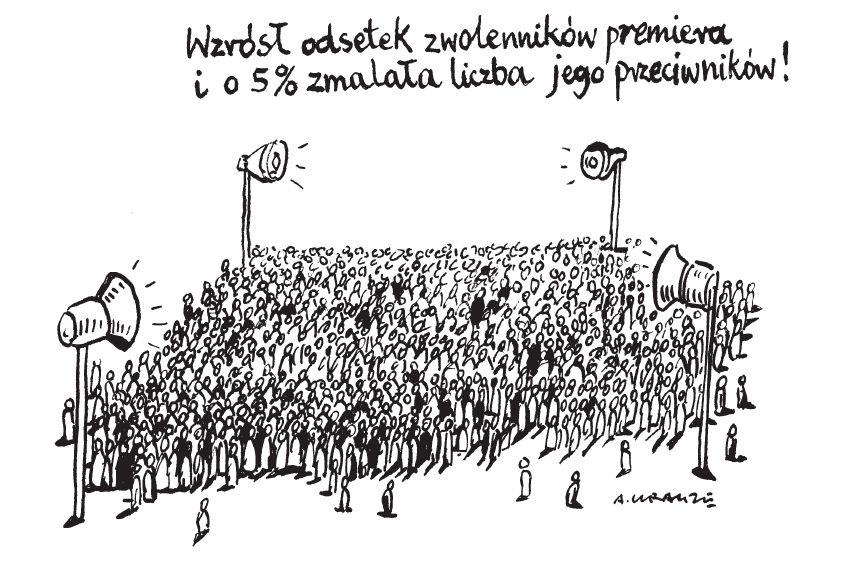 Wzrósł odsetek zwolenników premiera
i o 5% zmalała liczba jego przeciwników!
A. KRAUZE